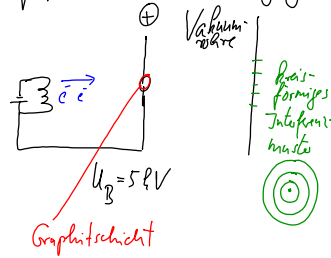 +
Vakuum-
röhre
e⁻ e⁻
kreis-
förmiges
Interferenz-
muster
U_B = 5 kV
Graphitschicht